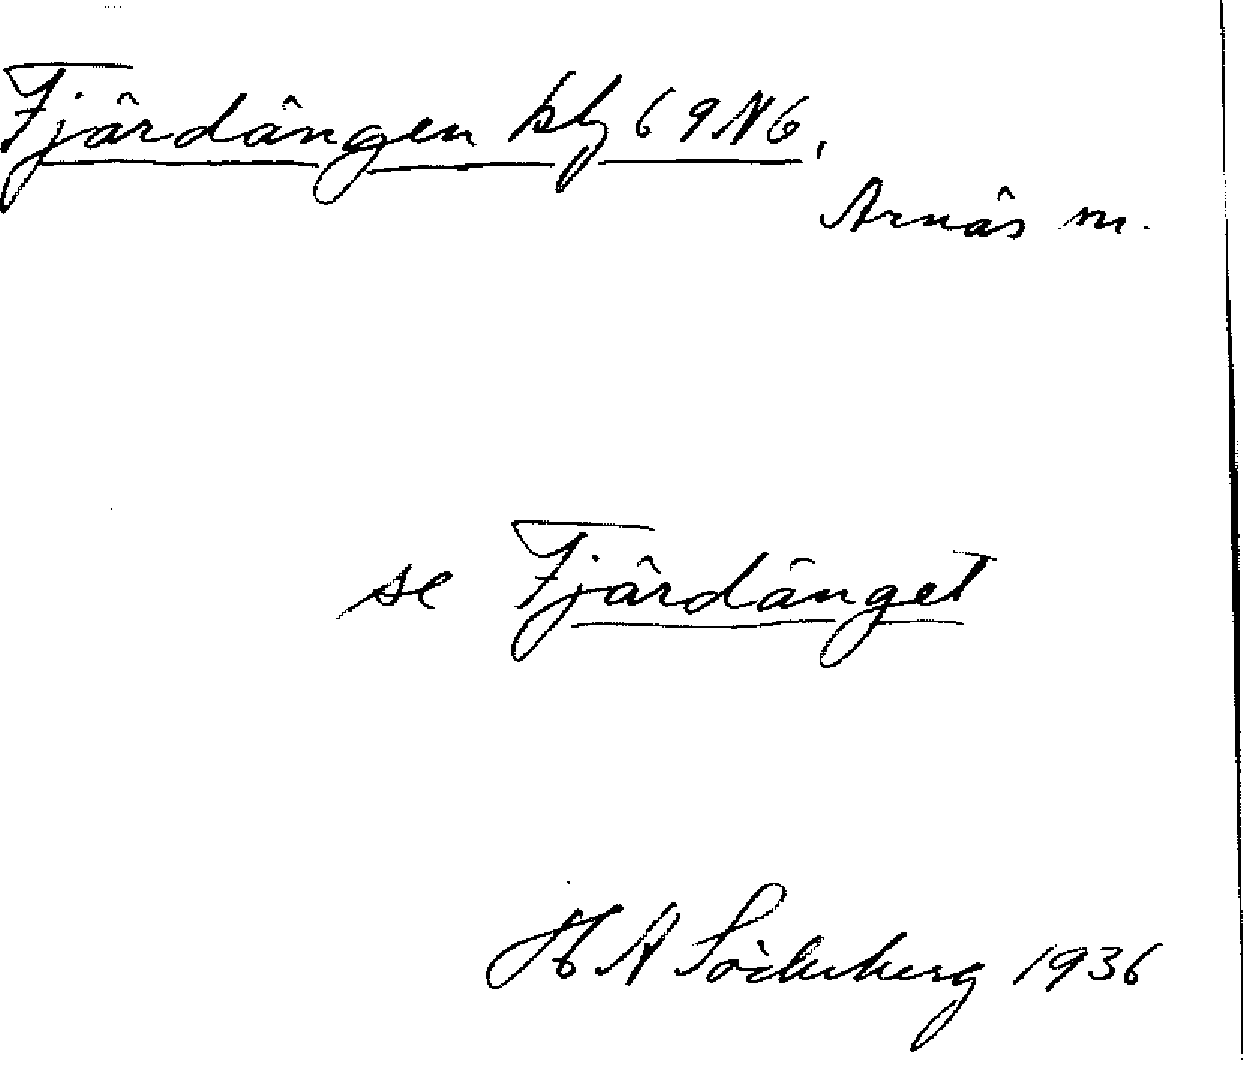 Fjärdängen kbg 69N6,
Arnäs m.
se Fjärdänget
H A Söderberg 1936